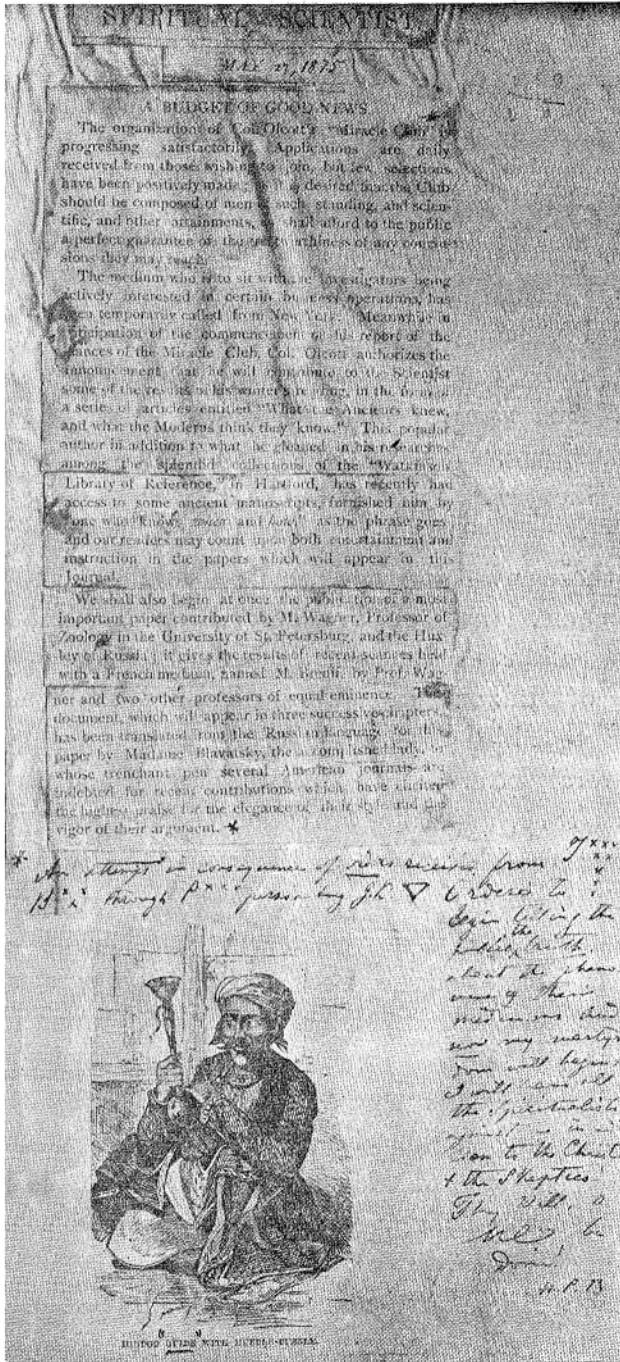 SPIRITUAL SCIENTIST.
27, 1875
A BUDGET OF GOOD NEWS
The organization of Col. Olcott's "Miracle Club" is
progressing satisfactorily. Applications are daily
received from those wishing to join, but few selections
have been positively made; it is desired that the Club
should be composed of men of such standing, and scien-
tific, and other attainments, as shall afford to the public
a perfect guarantee of the trustworthiness of any conclu-
sions they may reach.
The medium who is to sit with the investigators being
actively interested in certain business operations, has
been temporarily called from New York. Meanwhile in
anticipation of the commencement of his report of the
séances of the Miracle Club, Col. Olcott authorizes the
announcement that he will contribute to the Scientist
some of the results of his winter's reading, in the form of
a series of articles entitled "What the Ancients knew,
and what the Moderns think they know." This popular
author in addition to what he gleaned in his researches
among the splendid collections of the "Watkinson
Library of Reference," in Hartford, has recently had
access to some ancient manuscripts, furnished him by
"one who knows when and how" as the phrase goes
and our readers may count upon both entertainment and
instruction in the papers which will appear in this
Journal.
We shall also begin at once the publication of a most
important paper contributed by M. Wagner, Professor of
Zoology in the University of St. Petersburg, and the Hux-
ley of Russia; it gives the results of recent seances held
with a French medium, named M. Bredif, by Prof. Wag-
ner and two other professors of equal eminence. The
document, which will appear in three successive chapters,
has been translated from the Russian language for this
paper by Madame Blavatsky, the accomplished lady, to
whose trenchant pen several American journals are
indebted for recent contributions which have elicited
the highest praise for the elegance of their style and the
vigor of their argument. *
* An attempt in consequence of orders received from T xxx
B xx through P xxx personating J.K. ▽ Ordered to
begin telling the
public the truth
about the pheno-
mena & their
mediums. And
now my martyr-
dom will begin!
I will have all
the Spiritualists
against me in addi
tion to the Christ
& the Skeptics
Thy Will, o
M be
done!
H. P. B
HINDOO "GUIDE" WITH HUBBLE-BUBBLE.